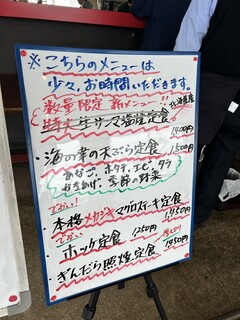 ※こちらのメニューは
少々、お時間いただきます。
数量限定 新メニュー!! 北海道産
特大 生サンマ塩焼定食
1400円
・海の幸の天ぷら定食 1500円
あなご、ホタテ、エビ、タラ
かきあげ、季節の野菜
でかい!
本格メカジキマグロステーキ定食
1450円
でかい
ホッケ定食 1250円
ぎんだら照焼定食 1450円